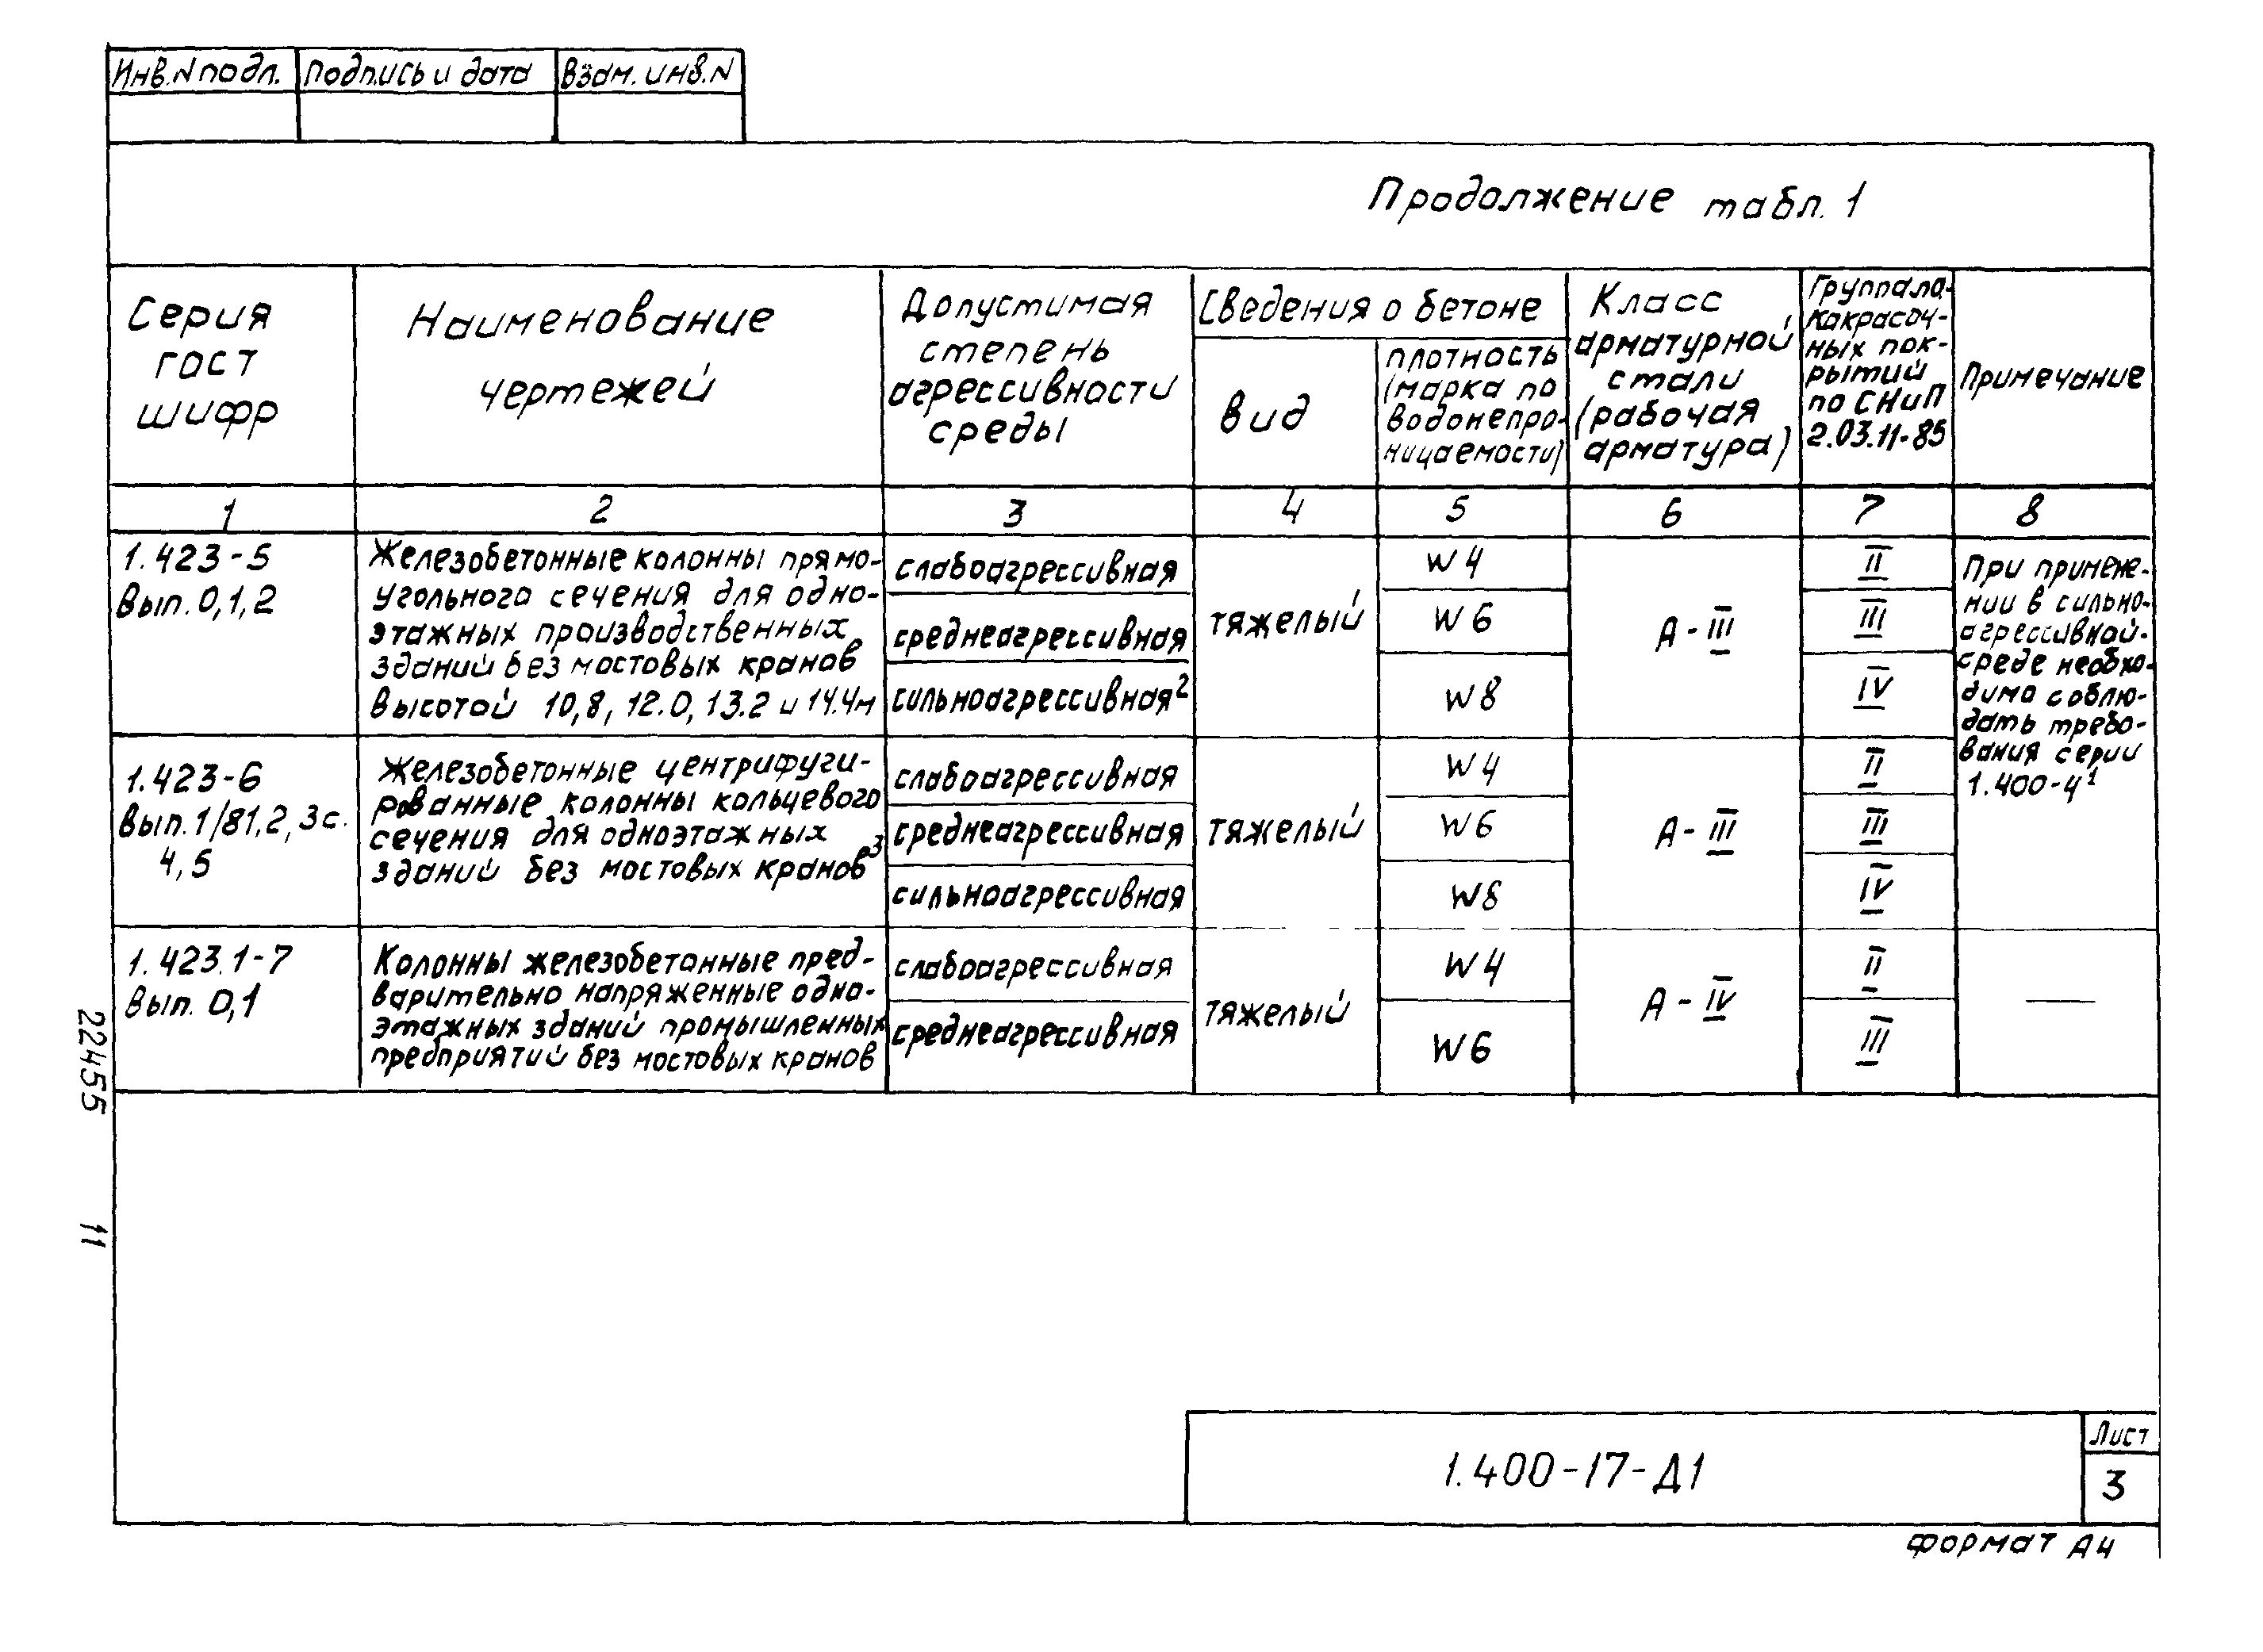 Инв.N подл. Подпись и дата Взам. инв.N
Продолжение табл. 1
Серия
гост
шифр
Наименование
чертежей
Допустимая
степень
агрессивности
среды
Сведения о бетоне
вид
плотность
(марка по
водонепро-
ницаемости)
Класс
арматурной
стали
(рабочая
арматура)
Группа ла-
кокрасоч-
ных пок-
рытий
по СНиП
2.03.11-85
Примечание
1 2 3 4 5 6 7 8
1.423-5
Вып. 0,1,2
Железобетонные колонны прямо-
угольного сечения для одно-
этажных производственных
зданий без мостовых кранов
высотой 10,8, 12.0, 13.2 и 14.4м
слабоагрессивная
среднеагрессивная
сильноагрессивная²
тяжелый
W4
W6
W8
А-III
II
III
IV
При примене-
нии в сильно-
агрессивной-
среде необхо-
димо соблю-
дать требо-
вания серии
1.400-4¹
1.423-6
Вып. 1/81,2,3с.
4,5
Железобетонные центрифуги-
рованные колонны кольцевого
сечения для одноэтажных
зданий без мостовых кранов³
слабоагрессивная
среднеагрессивная
сильноагрессивная
тяжелый
W4
W6
W8
А-III
II
III
IV
1.423.1-7
Вып. 0,1
Колонны железобетонные пред-
варительно напряженные одно-
этажных зданий промышленных
предприятий без мостовых кранов
слабоагрессивная
среднеагрессивная
тяжелый
W4
W6
А-IV
II
III
—
22455 11
1.400-17-Д1
Лист
3
формат А4